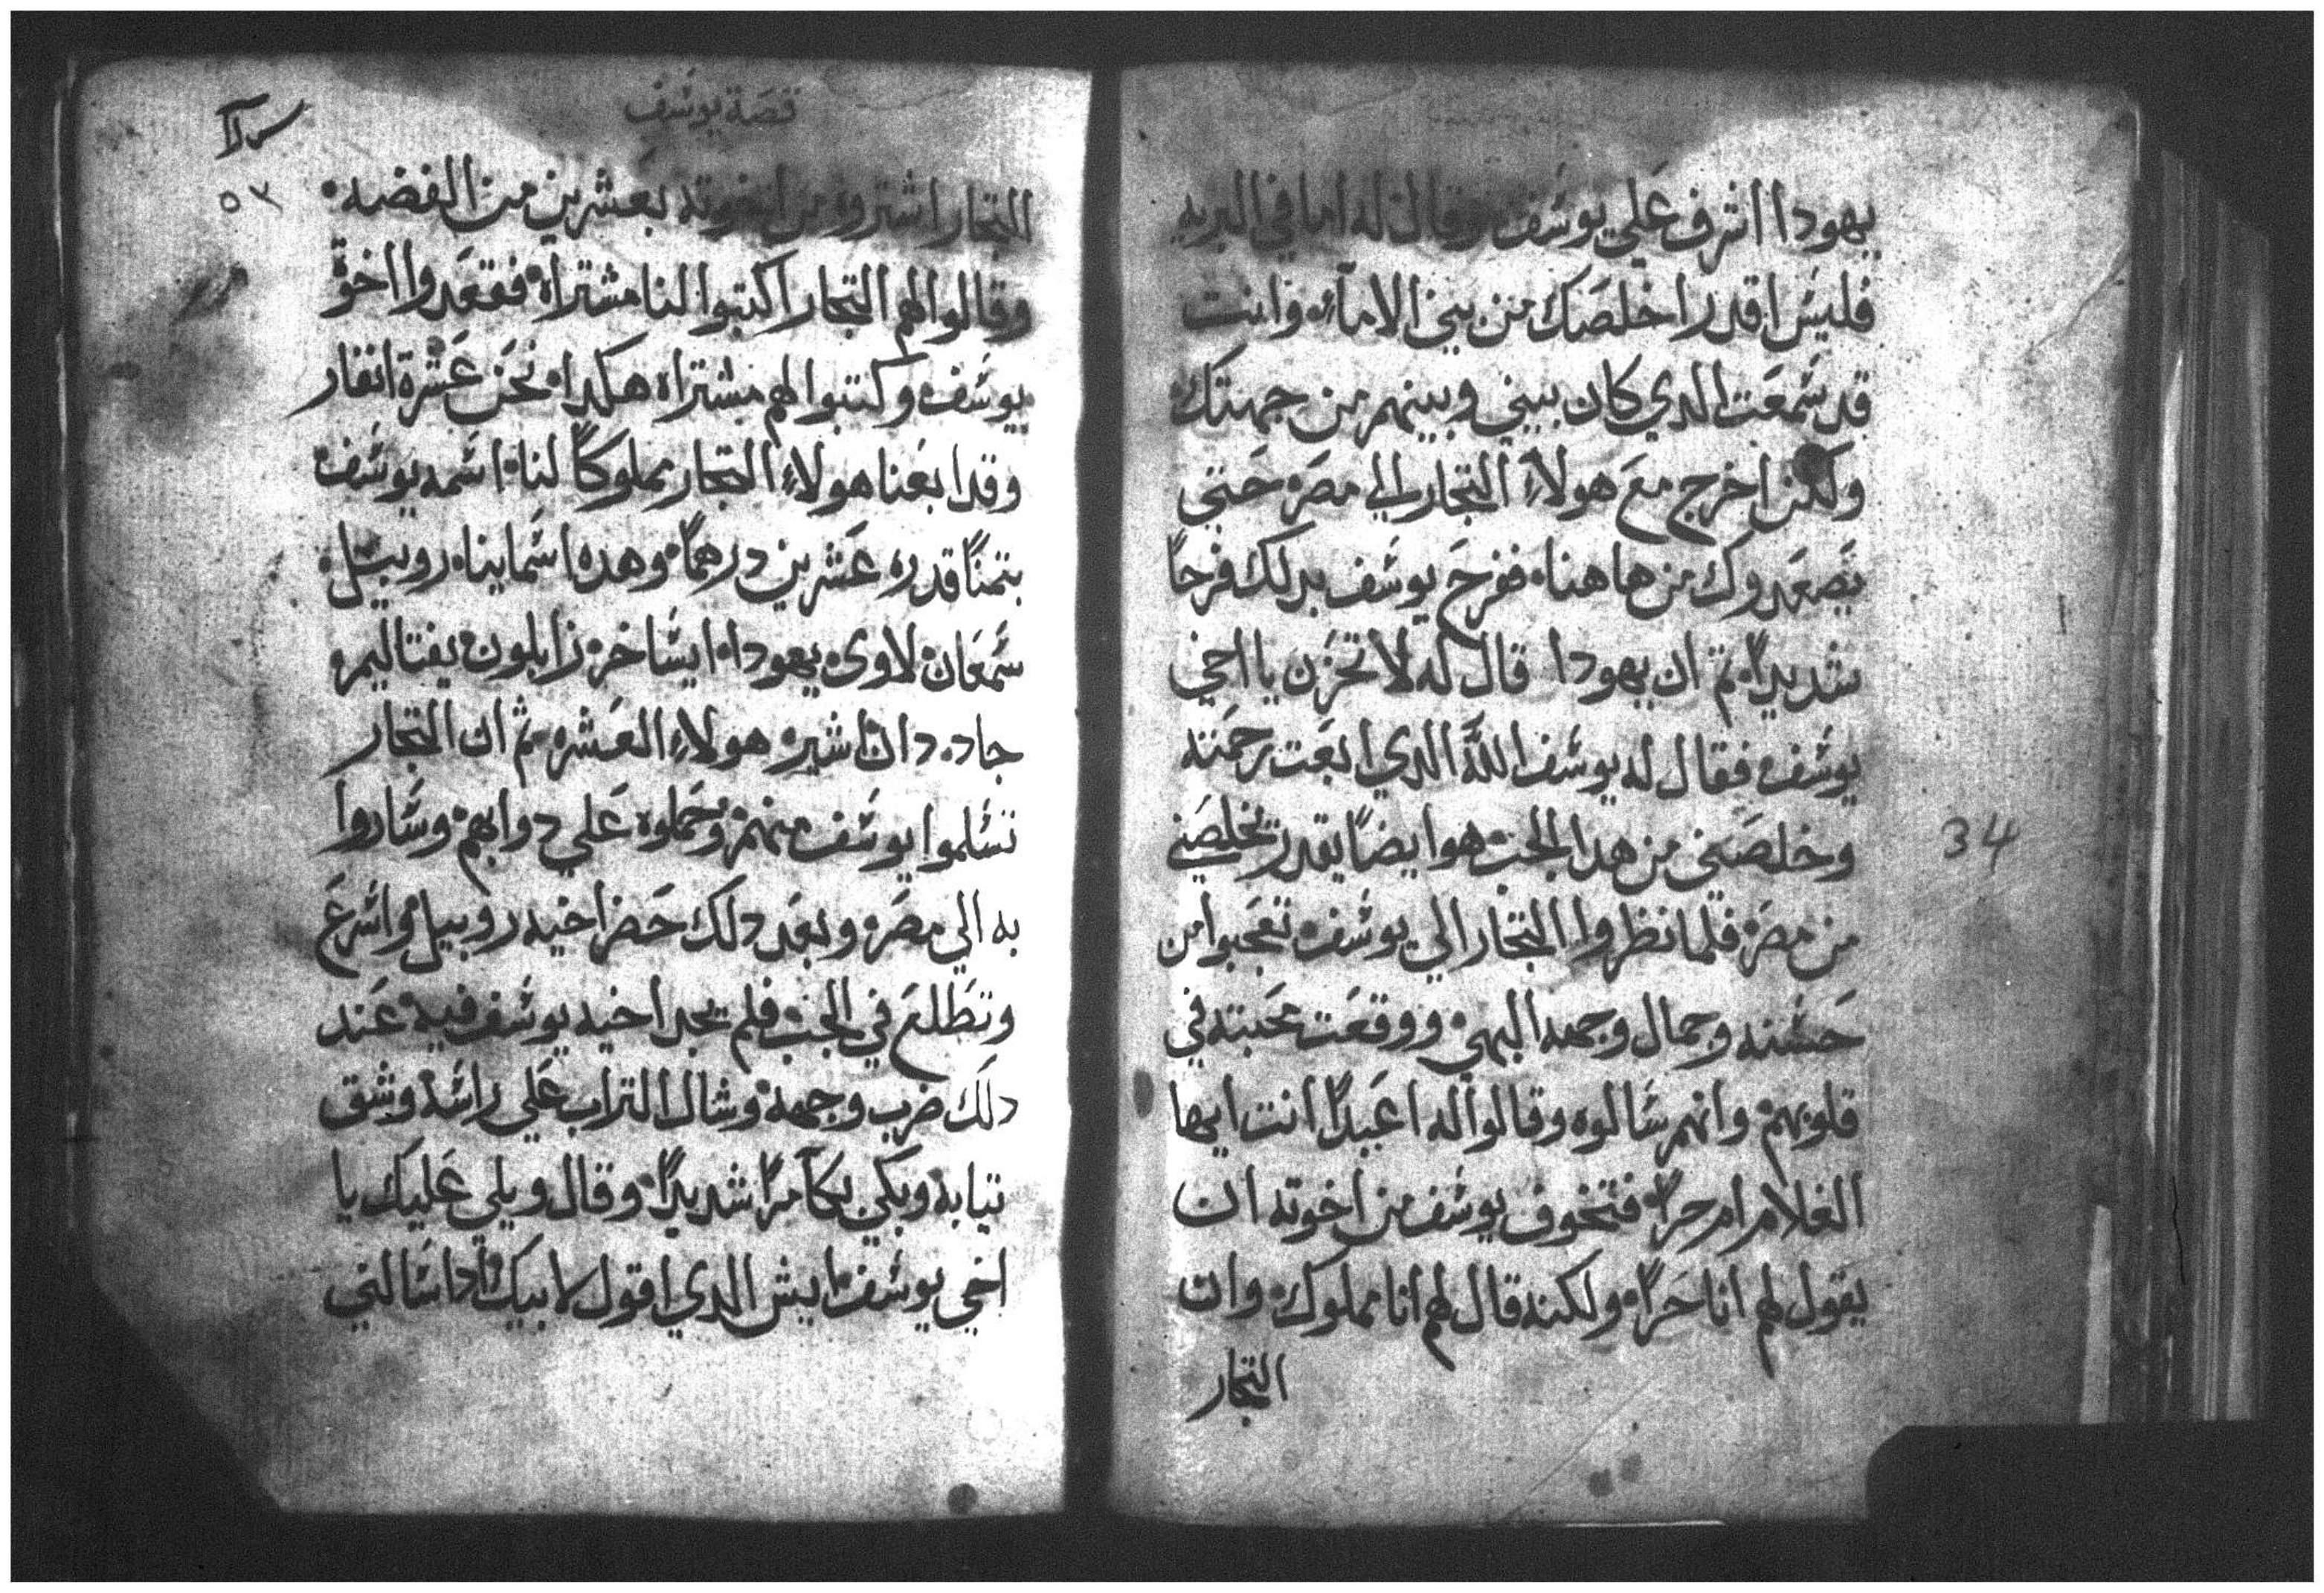 يهودا اشرف علي يوسف وقال له اما في البريه
فليس اقدر اخلصك من بين الاماء وانت
قد سمعت الدي كان بيني وبينهم من جهتك
ولكن اخرج مع هولاء التجار الي مصر حتي
يصعدوك من هاهنا ففرح يوسف بدلك فرحاً
شديداً تم ان يهودا قال له لا تحزن يا اخي
يوسف فقال له يوسف اللّه الدي ابعت رحمته
وخلصني من هدا الجب هو ايضاً يقدر يخلصني
من مصر فلما نظروا التجار الي يوسف تعجبوا من
حسنه وجمال وجهه البهي ووقعت محبته في
قلوبهم وانهم سالوه وقالوا له اعبداً انت ايها
الغلام ام حراً فتخوف يوسف من اخوته ان
يقول لهم انا حراً ولكنه قال لهم انا مملوك وان
التجار
34
قصة يوسف
التجار اشتروه من اخوته بعشرين من الفضه
وقالوا لهم التجار اكتبوا لنا مشتراه فقعدوا اخوة
يوسف وكتبوا لهم مشتراه هكدا نحن عشرة انفار
وقد ابعنا هولاء التجار مملوكاً لنا اسمه يوسف
بتمناً قدره عشرين درهماً وهده اسماينا روبيل
سمعان لاوي يهودا ايساخر زابلون يفتاليم
جاد دان اشير هولاء العشره ثم ان التجار
تسلموا يوسف منهم وحملوه علي دوابهم وساروا
به الي مصر وبعد دلك حضر اخيه روبيل واسرع
وتطلع في الجب فلم يجد اخيه يوسف فيه عند
دلك ضرب وجهه وشال التراب علي راسه وشق
تيابه وبكي بكاً مراً شديداً وقال ويلي عليك يا
اخي يوسف ايش الدي اقول لابيك ادا سالني